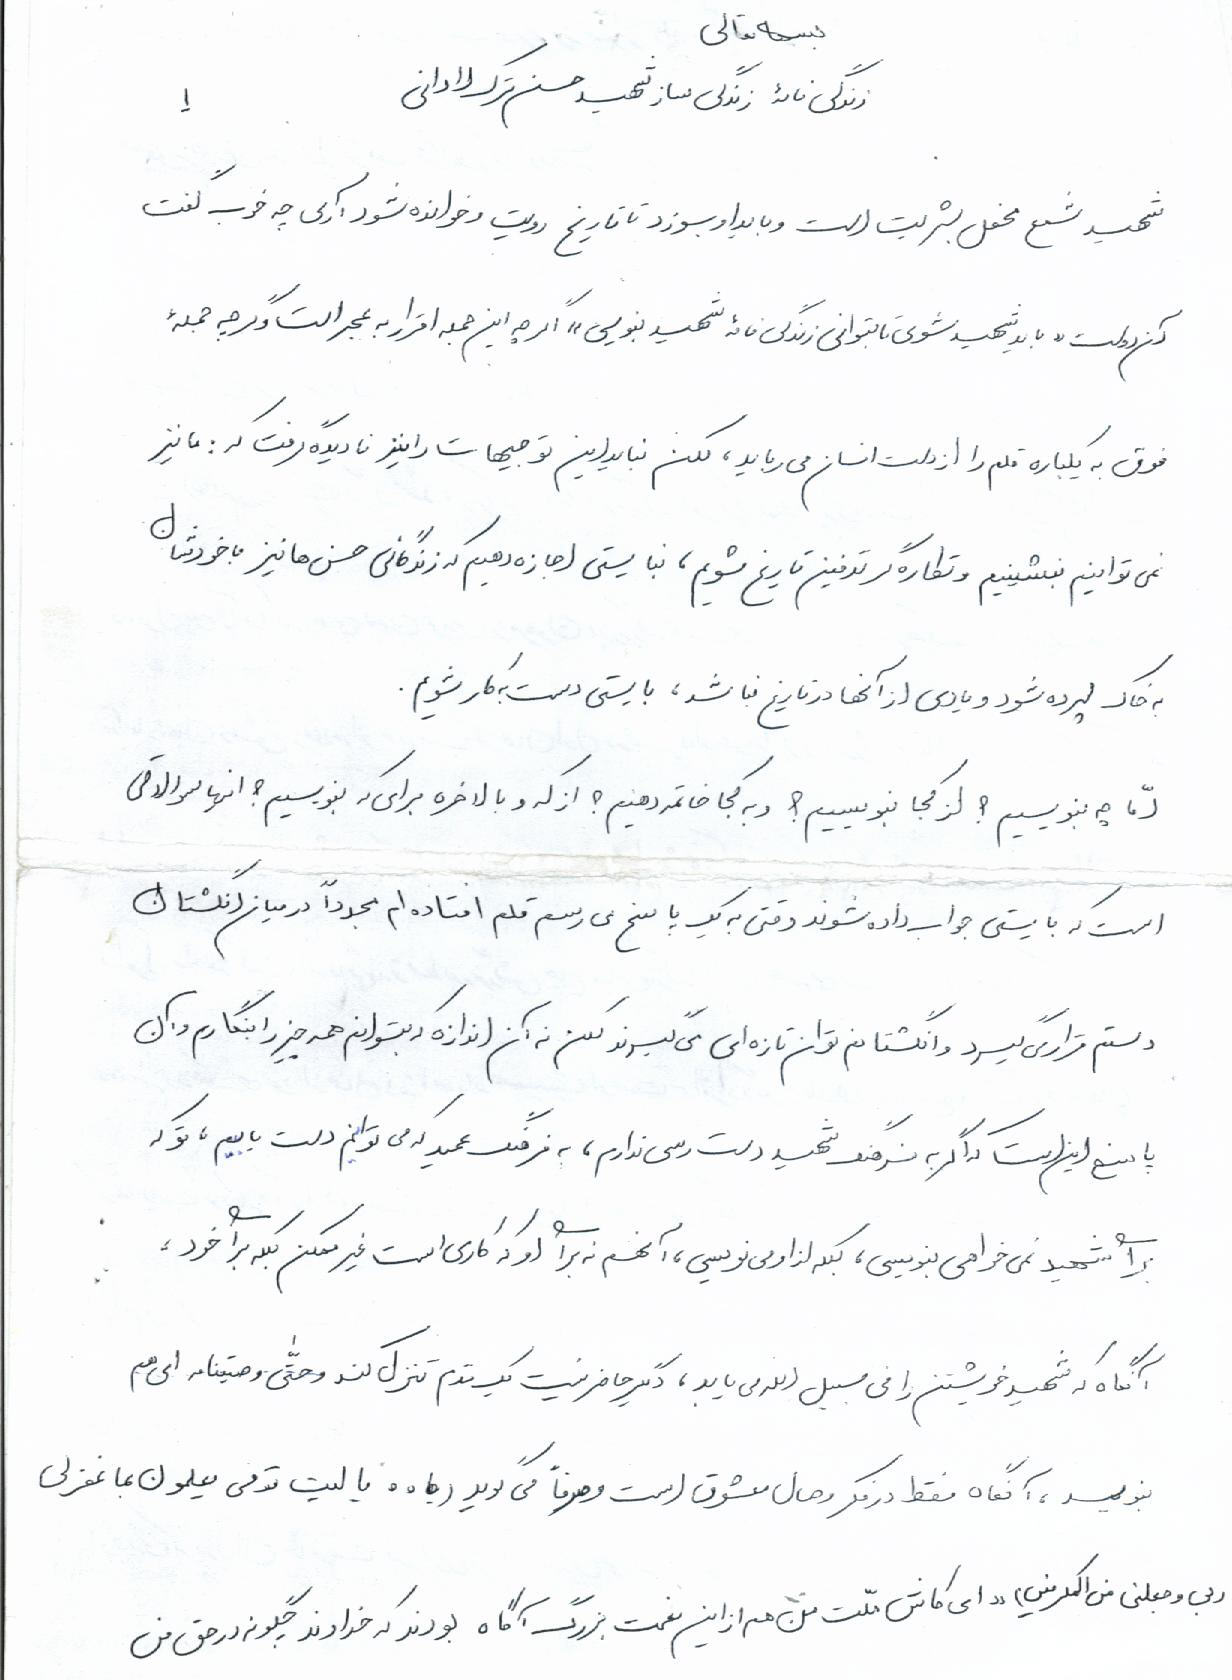 بسمه تعالی
زندگی نامهٔ زندگی ساز شهید حسن ترک لادانی
۱
شهید شمع محفل بشریت است و باید او بسوزد تا تاریخ رویت و خوانده شود آری چه خوب گفت
آن دوست « باید شهید شوی تا بتوانی زندگی نامهٔ شهید بنویسی » اگر چه این جمله اقرار به عجز است و گرچه جملهٔ
فوق به یکباره قلم را از دست انسان می رباید ، لکن نباید این توجیهات را نیز نادیده گرفت که : ما نیز
نمی توانیم بنشینیم و نظاره گر تدفین تاریخ شویم ، نبایستی اجازه دهیم که زندگانی حسن ها نیز با خودشان
به خاک سپرده شود و یادی از آنها در تاریخ نباشد ، بایستی دست به کار شویم .
امّا چه بنویسیم ؟ از کجا بنویسیم ؟ و به کجا خاتمه دهیم ؟ از که و بالاخره برای که بنویسیم ؟ اینها سوالاتی
است که بایستی جواب داده شوند وقتی به یک پاسخ می رسم قلم افتاده ام مجدداً در میان انگشتان
دستم قرار می گیرد و انگشتانم توان تازه ای می گیرند لکن نه آن اندازه که بتوانم همه چیز را بنگارم و آن
پاسخ این است که اگر به فرهنگ شهید دست رسی ندارم ، به فرهنگ عمید که می توانیم دست یابیم ، تو که
برای شهید نمی خواهی بنویسی ، بلکه از او می نویسی ، آنهم نه برای او که کاری است غیر ممکن بلکه برای خود ،
آنگاه که شهید خویشتن را فی سبیل الله می یابد ، دیگر حاضر نیست یک قدم تنزل کند و حتّی وصیتنامه ای هم
بنویسد ، آنگاه فقط در فکر وصال معشوق است و صرفاً می گوید یا لیت قومی یعلمون بما غفرلی
ربی و جعلنی من المکرمین » « ای کاش ملّت من هم از این نعمت بزرگ آگاه بودند که خداوند چگونه در حق من